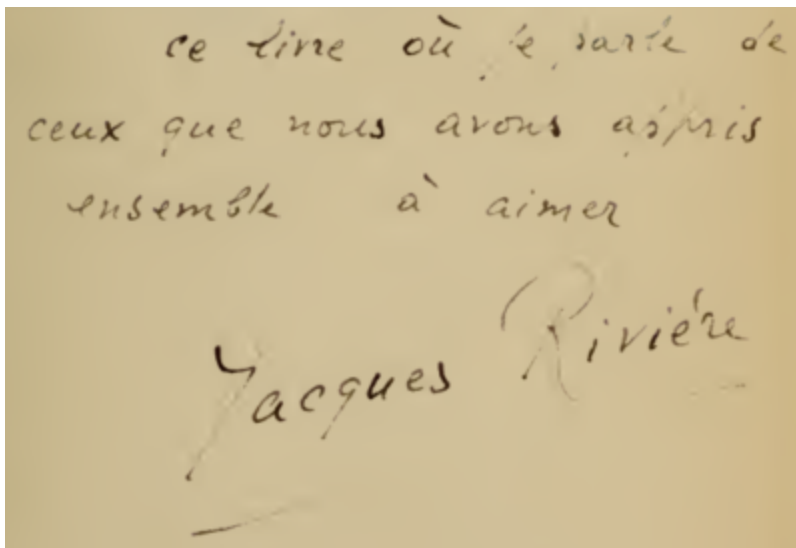 ce livre où je parle de
ceux que nous avons appris
ensemble à aimer
Jacques Rivière